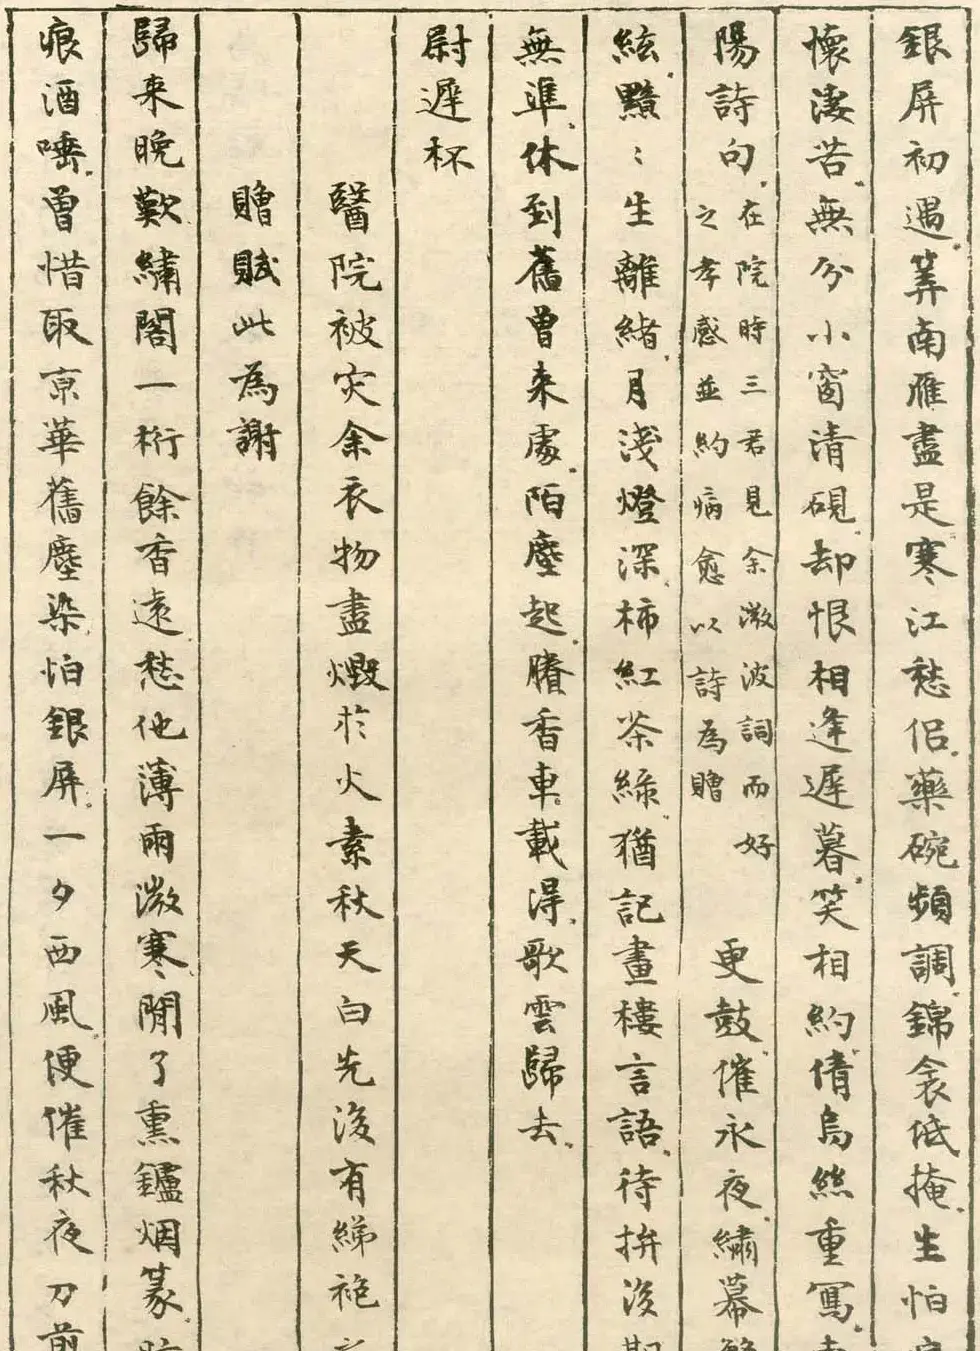 銀屏初遇算南雁盡是寒江愁侶藥碗頻調錦衾低掩生怕
懷淒苦無分小窗清硯却恨相逢遲暮笑相約倩烏絲重寫
陽詩句在院時三君見余微波詞而好之孝感並約病愈以詩為贈更鼓催永夜繡幕
絃黯〻生離緒月淺燈深柿紅茶綠猶記畫樓言語待拚後期
無準休到舊曾來處陌塵起賸香車載得歌雲歸去
尉遲杯
醫院被灾余衣物盡燬於火素秋天白先後有綈袍之
贈賦此為謝
歸来晚歎繡閣一桁餘香遠愁他薄雨微寒閒了熏鑪烟篆
痕酒唾曾惜取京華舊塵染怕銀屏一夕西風便催秋夜刀剪